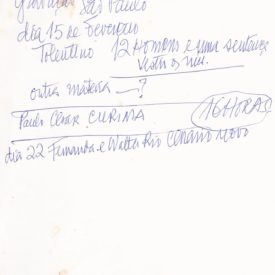 São Paulo
dia 15 de Fevereiro
Tolentino 12 Homens e uma sentença
outra matéria — ?
Paulo Cesar CURINA 16 HORAS
dia 22 Fernanda e Walter Rio Cenário Novo